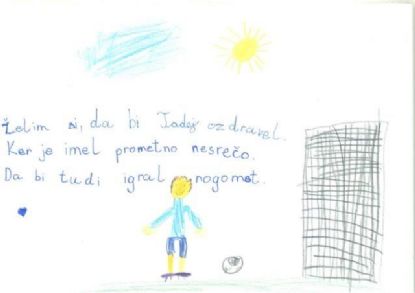 Želim si, da bi Tadej ozdravel.
Ker je imel prometno nesrečo.
Da bi tudi igral nogomet.